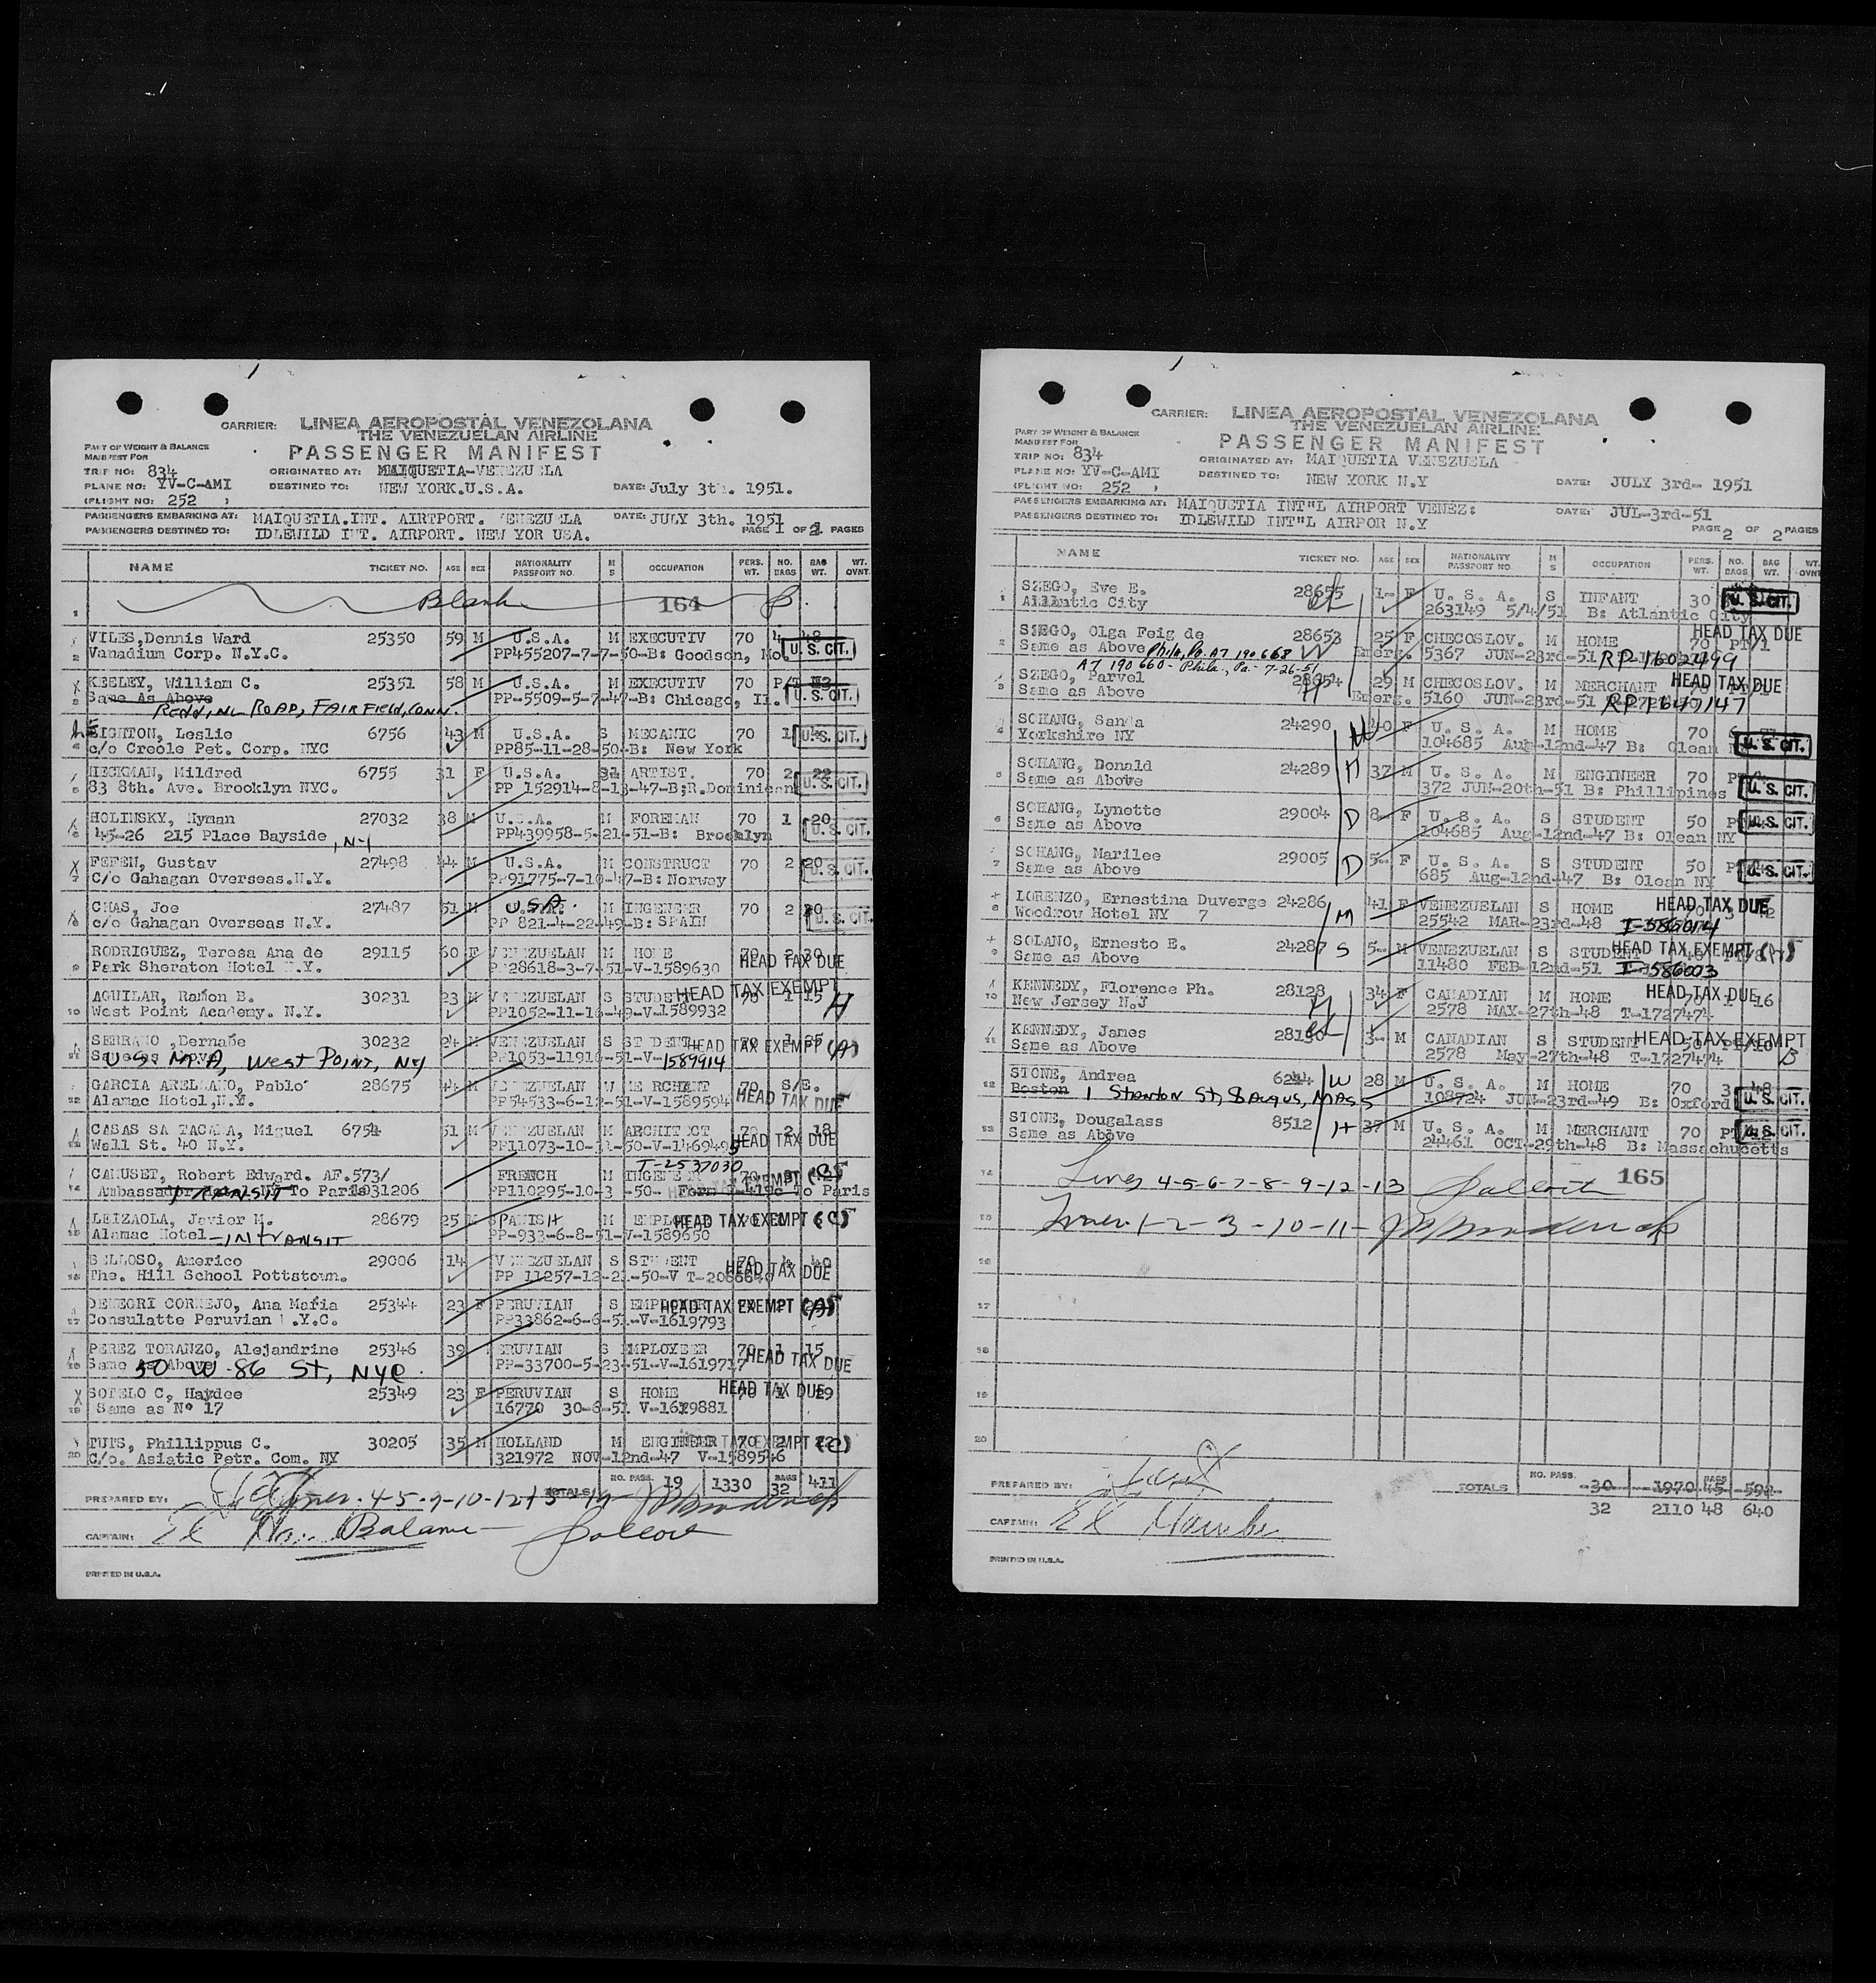 CARRIER: LINEA AEROPOSTAL VENEZOLANA
THE VENEZUELAN AIRLINE
PART OF WEIGHT & BALANCE
MANIFEST FOR
PASSENGER MANIFEST
TRIP NO: 834 ORIGINATED AT: MAIQUETIA-VENEZUELA
PLANE NO: YV-C-AMI DESTINED TO: NEW YORK.U.S.A. DATE: July 3th. 1951.
(FLIGHT NO: 252 )
PASSENGERS EMBARKING AT: MAIQUETIA.INT. AIRTPORT. VENEZUELA DATE: JULY 3th. 1951
PASSENGERS DESTINED TO: IDLEWILD INT. AIRPORT. NEW YOR USA. PAGE 1 OF 2 PAGES
NAME TICKET NO. AGE SEX NATIONALITY PASSPORT NO. M S OCCUPATION PERS. WT. NO. BAGS BAG WT. WT. OVNT
1 Blank 164
VILES,Dennis Ward 25350 59 M U.S.A. M EXECUTIV 70 4 48
2 Vanadium Corp. N.Y.C. PP455207-7-7-50-B: Goodson, Mo. U.S. CIT.
KEELEY, William C. 25351 58 M U.S.A. M EXECUTIV 70
3 Same As Above PP-5509-5-7-47-B: Chicago, Il. U.S. CIT.
ROAD, FAIRFIELD, CONN.
LEIGHTON, Leslie 6756 43 M U.S.A. S MECANIC 70 1 U.S. CIT.
4 c/o Creole Pet. Corp. NYC PP85-11-28-50-B: New York
HECKMAN, Mildred 6755 31 F U.S.A. ARTIST. 70 2 22
5 83 8th. Ave. Brooklyn NYC. PP 152914-8-13-47-B:R.Dominican U.S. CIT.
HOLINSKY, Hyman 27032 38 M U.S.A. M FOREMAN 70 1 20
6 45-26 215 Place Bayside, N-Y PP439958-5-21-51-B: Brooklyn U.S. CIT.
FEFEN, Gustav 27498 44 M U.S.A. M CONSTRUCT 70 2 20
7 C/o Gahagan Overseas.N.Y. PP91775-7-10-47-B: Norway U.S. CIT.
CHAS, Joe 27487 51 M U.S.A. M INGENEER 70 2 20
8 c/o Gahagan Overseas N.Y. PP 821-4-22-49-B: SPAIN U.S. CIT.
RODRIGUEZ, Teresa Ana de 29115 60 F VENEZUELAN M HOME 70 2 30
9 Park Sheraton Hotel N.Y. PP28618-3-7-51-V-1589630 HEAD TAX DUE
AGUILAR, Ramon B. 30231 23 M VENEZUELAN S STUDENT HEAD TAX EXEMPT 70 1 15
10 West Point Academy. N.Y. PP1052-11-16-49-V-1589932 A
SERRANO ,Bernabe 30232 24 M VENEZUELAN S STUDENT HEAD TAX EXEMPT (A)
11 Same as Above PP1053-11916-51-V-1589914
U.S. M.A, WEST POINT, NY
GARCIA ARELLANO, Pablo 28675 44 M VENEZUELAN M MERCHANT 70 S/E.
12 Alamac Hotel,N.Y. PP54533-6-12-51-V-1589594 HEAD TAX DUE
CASAS SA TACANA, Miguel 6754 51 M VENEZUELAN M ARCHITECT 70 2 18
13 Wall St. 40 N.Y. PP11073-10-11-50-V-1469495 HEAD TAX DUE
CAMUSET, Robert Edward. AF.573/ FRENCH M T-2537030
14 To Paris 1031206 PP110295-10-3 -50- To Paris EXEMPT
IN TRANSIT
LEIZAOLA, Javier M. 28679 25 M SPANISH M HEAD TAX EXEMPT (C)
15 Alamac Hotel -IN TRANSIT PP-933-6-8-51-V-1589650
BELLOSO, Americo 29006 14 VENEZUELAN S STUDENT 70 40
16 The. Hill School Pottstown. PP 11257-12-21-50-V HEAD TAX DUE
DENEGRI CORNEJO, Ana Maria 25344 23 F PERUVIAN S HEAD TAX EXEMPT (A)
17 Consulatte Peruvian N.Y.C. PP33862-6-6-51-V-1619793
PEREZ TORANZO, Alejandrine 25346 39 PERUVIAN S EMPLOYEER 70 1 15
18 Same as Above PP-33700-5-23-51-V-1619717 HEAD TAX DUE
50 W-86 ST, NYC.
SOTELO C, Haydee 25349 23 F PERUVIAN S HOME HEAD TAX DUE
19 Same as Nº 17 16770 30-6-51 V-1619881
TUTS, Phillippus C. 30205 35 M HOLLAND M ENGINEAR 70 HEAD TAX EXEMPT (C)
20 C/o. Asiatic Petr. Com. NY 321972 NOV-12nd-47 V-1589546
TOTALS NO. PASS. 19 1330 BAGS 32 411
PREPARED BY:
CAPTAIN:
PRINTED IN U.S.A.
CARRIER: LINEA AEROPOSTAL VENEZOLANA
THE VENEZUELAN AIRLINE
PART OF WEIGHT & BALANCE
MANIFEST FOR
PASSENGER MANIFEST
TRIP NO: 834 ORIGINATED AT: MAIQUETIA VENEZUELA
PLANE NO: YV-C-AMI DESTINED TO: NEW YORK N.Y DATE: JULY 3rd- 1951
(FLIGHT NO: 252 )
PASSENGERS EMBARKING AT: MAIQUETIA INT"L AIRPORT VENEZ: DATE: JUL-3rd-51
PASSENGERS DESTINED TO: IDLEWILD INT"L AIRPOR N.Y PAGE 2 OF 2 PAGES
NAME TICKET NO. AGE SEX NATIONALITY PASSPORT NO. M S OCCUPATION PERS. WT. NO. BAGS BAG WT. WT. OVNT
SZEGO, Eve E. 28655 1- F U. S. A. S INFANT 30 U.S. CIT.
1 Atlantic City 263149 5/4/51 B: Atlantic City
SZEGO, Olga Feig de 28653 25 F CHECOSLOV. M HOME HEAD TAX DUE
2 Same as Above Phila, Pa. A7 190 668 W Emerg. 5367 JUN-23rd-51 RP-1602499
A7 190 660- Phila, Pa- 7-26-51
SZEGO, Parvel 28654 29 M CHECOSLOV. M MERCHANT HEAD TAX DUE
3 Same as Above H Emerg. 5160 JUN-23rd-51 RP 1647147
SCHANG, Sanda 24290 40 F U. S. A. M HOME 70
4 Yorkshire NY 104685 Aug-12nd-47 B: Olean U.S. CIT.
SCHANG, Donald 24289 H 37 M U. S. A. M ENGINEER 70
5 Same as Above 372 JUN-20th-51 B: Phillipines U.S. CIT.
SCHANG, Lynette 29004 D 8- F U. S. A. S STUDENT 50
6 Same as Above 104685 Aug-12nd-47 B: Olean NY U.S. CIT.
SCHANG, Marilee 29005 D 5- F U. S. A. S STUDENT 50
7 Same as Above 685 Aug-12nd-47 B: Olean NY U.S. CIT.
LORENZO, Ernestina Duverge 24286 M 41 F VENEZUELAN S HOME HEAD TAX DUE
8 Woodrow Hotel NY 7 25542 MAR-23rd-48
SOLANO, Ernesto E. 24287 S 5- M VENEZUELAN S STUDENT HEAD TAX EXEMPT
9 Same as Above 11480 FEB-12nd-51 I-586003
KENNEDY, Florence Ph. 28128 34 F CANADIAN M HOME HEAD TAX DUE 16
10 New Jersey N.J 2578 MAY-27th-48 T-1727474
KENNEDY, James 28130 3- M CANADIAN S STUDENT HEAD TAX EXEMPT
11 Same as Above 2578 May-27th-48 T-1727474 B
STONE, Andrea 6244 W 28 M U. S. A. M HOME 70 3 48
12 Boston 1 Stanton St, Saugus, Mass 108724 JUN-23rd-49 B: Oxford U.S. CIT.
STONE, Dougalass 8512 H 37 M U. S. A. M MERCHANT 70
13 Same as Above 24461 OCT-29th-48 B: Massachucetts U.S. CIT.
14 Lines 4-5-6-7-8-9-12-13 165
15 Lines 1-2-3-10-11-
16
17
18
19
20
PREPARED BY: TOTALS NO. PASS. 30 1970 BAGS 45 592
32 2110 48 640
CAPTAIN:
PRINTED IN U.S.A.